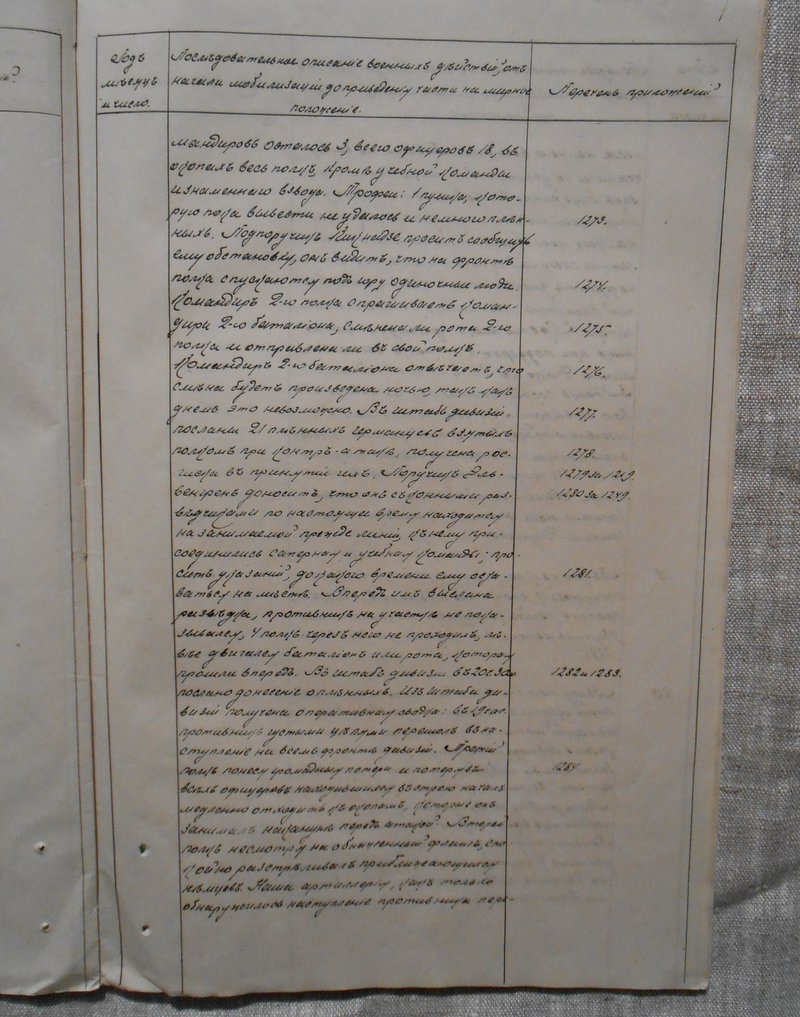 Годъ
мѣсяцъ
и число.
Послѣдовательное описаніе военныхъ дѣйствій, отъ
начала мобилизаціи до приведенія части на мирное
положеніе.
Перечень приложеній
мандировъ осталось 3, всего офицеровъ 18, въ
окопахъ весь полкъ, кромѣ учебной команды
и знаменнаго взвода. Трофеи: 1 пушка, кото-
рую пока вывести не удалось и немного плѣн-
ныхъ. Подпоручикъ проситъ сообщить 1273.
ему обстановку, онъ видитъ, что на фронтѣ
полка спускаются подъ гору одиночные люди. 1274.
Командиръ 2-го полка спрашиваетъ коман-
дира 2-го баталіона, смѣнена ли рота 2-го 1275.
полка и отправлена ли въ свой полкъ.
Командиръ 2-го баталіона отвѣчаетъ, что 1276.
смѣна будетъ произведена ночью, такъ какъ
днемъ это невозможно. Въ штабъ дивизіи 1277.
посланы 21 плѣнныхъ германцевъ взятыхъ
полкомъ при контръ-атакѣ, получена рос- 1278.
писка въ принятіи ихъ. Поручикъ Эль- 1279 за 1249.
венгренъ доноситъ, что онъ съ конными раз- 1280 за 1249.
вѣдчиками по настоящее время находится
на занимаемой прежде линіи, къ нему при-
соединились саперная и учебная команды; про-
ситъ указаній, до какого времени ему оста- 1281.
ваться на мѣстѣ. Впередъ имъ выслана
развѣдка, противникъ на участкѣ не пока-
зывался, 4 полкъ черезъ него не проходилъ, лѣ-
вѣе двигался баталіонъ или рота, которая
прошли впередъ. Въ штабъ дивизіи въ 1282 и 1283.
послано донесеніе о плѣнныхъ. Изъ штаба ди-
визіи получена оперативная сводка: въ 19 час.
противникъ густыми цѣпями перешелъ въ на-
ступленіе на всемъ фронтѣ дивизіи. Третій
полкъ понеся громадныя потери и потерявъ
всѣхъ офицеровъ находившихся въ строю началъ
медленно отходить къ окопамъ, которые онъ
занималъ наканунѣ передъ атакой. Второй
полкъ несмотря на обнаженный флангъ, спо-
койно разстрѣливалъ приближающихся
нѣмцевъ. Наша артиллерія, какъ только
обнаружилось наступленіе противника пере-